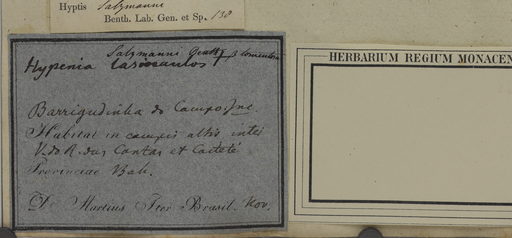 Hyptis Salzmanni
Benth. Lab. Gen. et Sp. 138
Salzmanni Benth β tomentosa
Hypenia lasiocaulos
Barrigudinha do Campo. Inc.
Habitat in campis altis inter
V. do R. das Contas et Caeteté
Provinciae Bah.
D. Martius Iter Brasil. Nov.
HERBARIUM REGIUM MONACEN